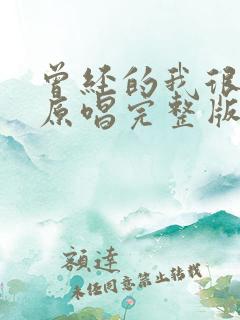 曾经的我很
原唱完整版
额達
未经同意禁止转载